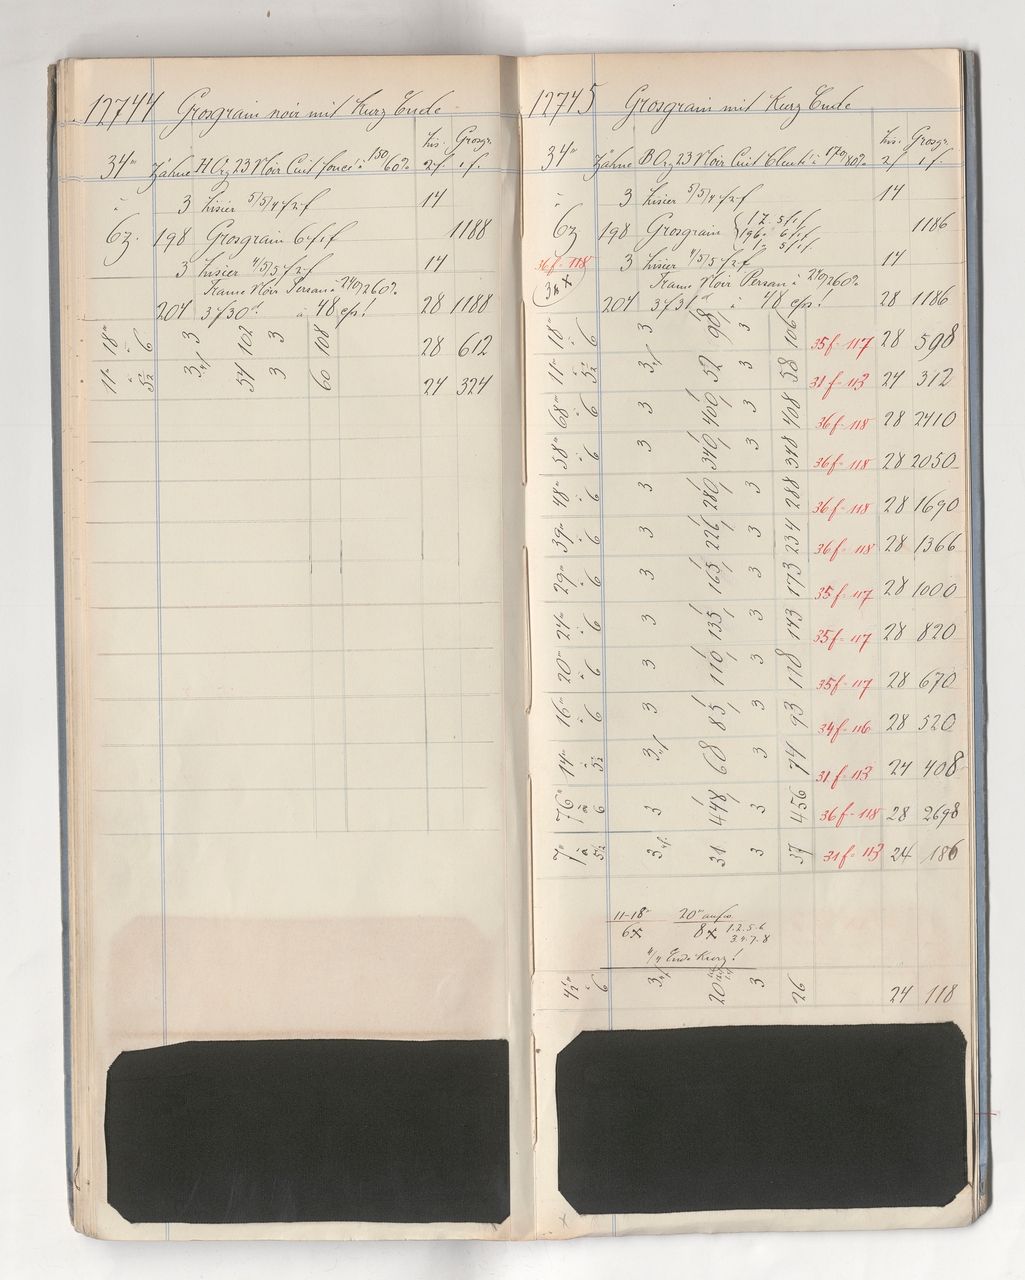 12744 Grosgrain noir mit Kurz Ende
Lis. Grosgr.
34''' Zähne H Org 23 Noir Cuit foncé à 150/60% 2f. 1f.
à 3 Lisier 5/5/4 f 2 f 14
6z. 198 Grosgrain 6 f. 1 f 1188
3 Lisier 4/5/5 f 2 f 14
Trame Noir Persan à 240/260%
204 3 f 30 à 48 cps! 28 1188
18''' à 6 3 102 3 108 28 612
11''' à 5½ 3 54 3 60 24 324
12745 Grosgrain mit Kurz Ende
Lis. Grosgr.
34''' Zähne B Org 23 Noir Cuit à 170/180% 2f 1f.
à 3 Lisier 5/5/4 f 2 f 14
6z 198 Grosgrain 1 z. 5 f. 1 f. 1186
196 " 6 f. 1 f.
1 z 5 f. 1 f.
36f = 118 3 Lisier 4/5/5 f 2 f 14
3 x Trame Noir Persan à 240/260%
204 3 f 31 à 48 cps! 28 1186
18''' à 6 3 98 3 106 35f = 117 28 598
11''' à 5½ 3 52 3 58 31f = 113 24 312
68''' à 6 3 400 3 408 36f = 118 28 2410
58''' à 6 3 340 3 348 36f = 118 28 2050
48''' à 6 3 280 3 288 36f = 118 28 1690
39''' à 6 3 226 3 234 36f = 118 28 1366
29''' à 6 3 165 3 173 35f = 117 28 1000
24''' à 6 3 135 3 143 35f = 117 28 820
20''' à 6 3 110 3 118 35f = 117 28 670
16''' à 6 3 85 3 93 34f = 116 28 520
14''' à 5½ 3 68 3 74 31f = 113 24 408
76''' à 6 3 448 3 456 36f = 118 28 2698
7''' à 5½ 3 31 3 37 31f = 113 24 186
11-18''' 20'''
6 x 8 x 1.2.5.6
3.4.7.8
4/4 Ende Kurz!
4½''' à 6 3 20 3 26 24 118